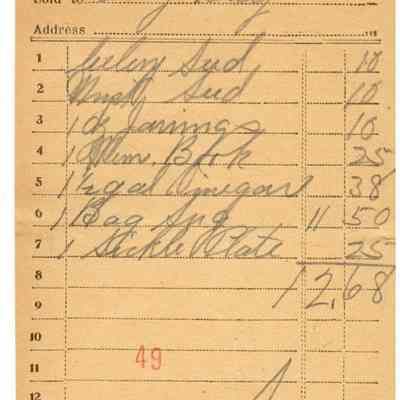 Sold to
Address
1 Celery Seed 10
2 Must Seed 10
3 1 dz Jar rings 10
4 1 Mem. Book 25
5 1 gal Vinegar 38
6 1 Bag Sug 11 50
7 1 Sickle Plate 25
8 12.68
9
10
11 49
12